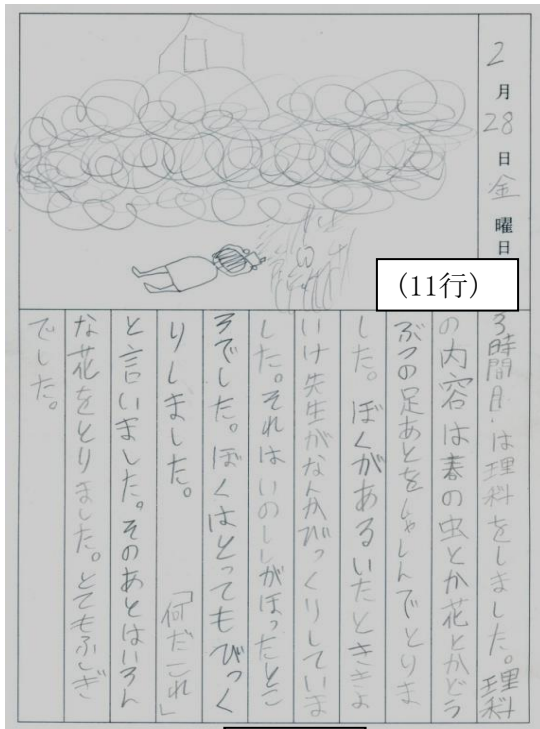 2月28日金曜日
(11行)
3時間目は理科をしました。理科
の内容は春の虫とか花とかどう
ぶつの足あとをしゃしんでとりま
した。ぼくがあるいたとききよ
いけ先生がなんかびっくりしていま
した。それはいのししがほったとこ
ろでした。ぼくはとってもびっく
りしました。「何だこれ」
と言いました。そのあとはいろん
な花をとりました。とてもふしぎ
でした。